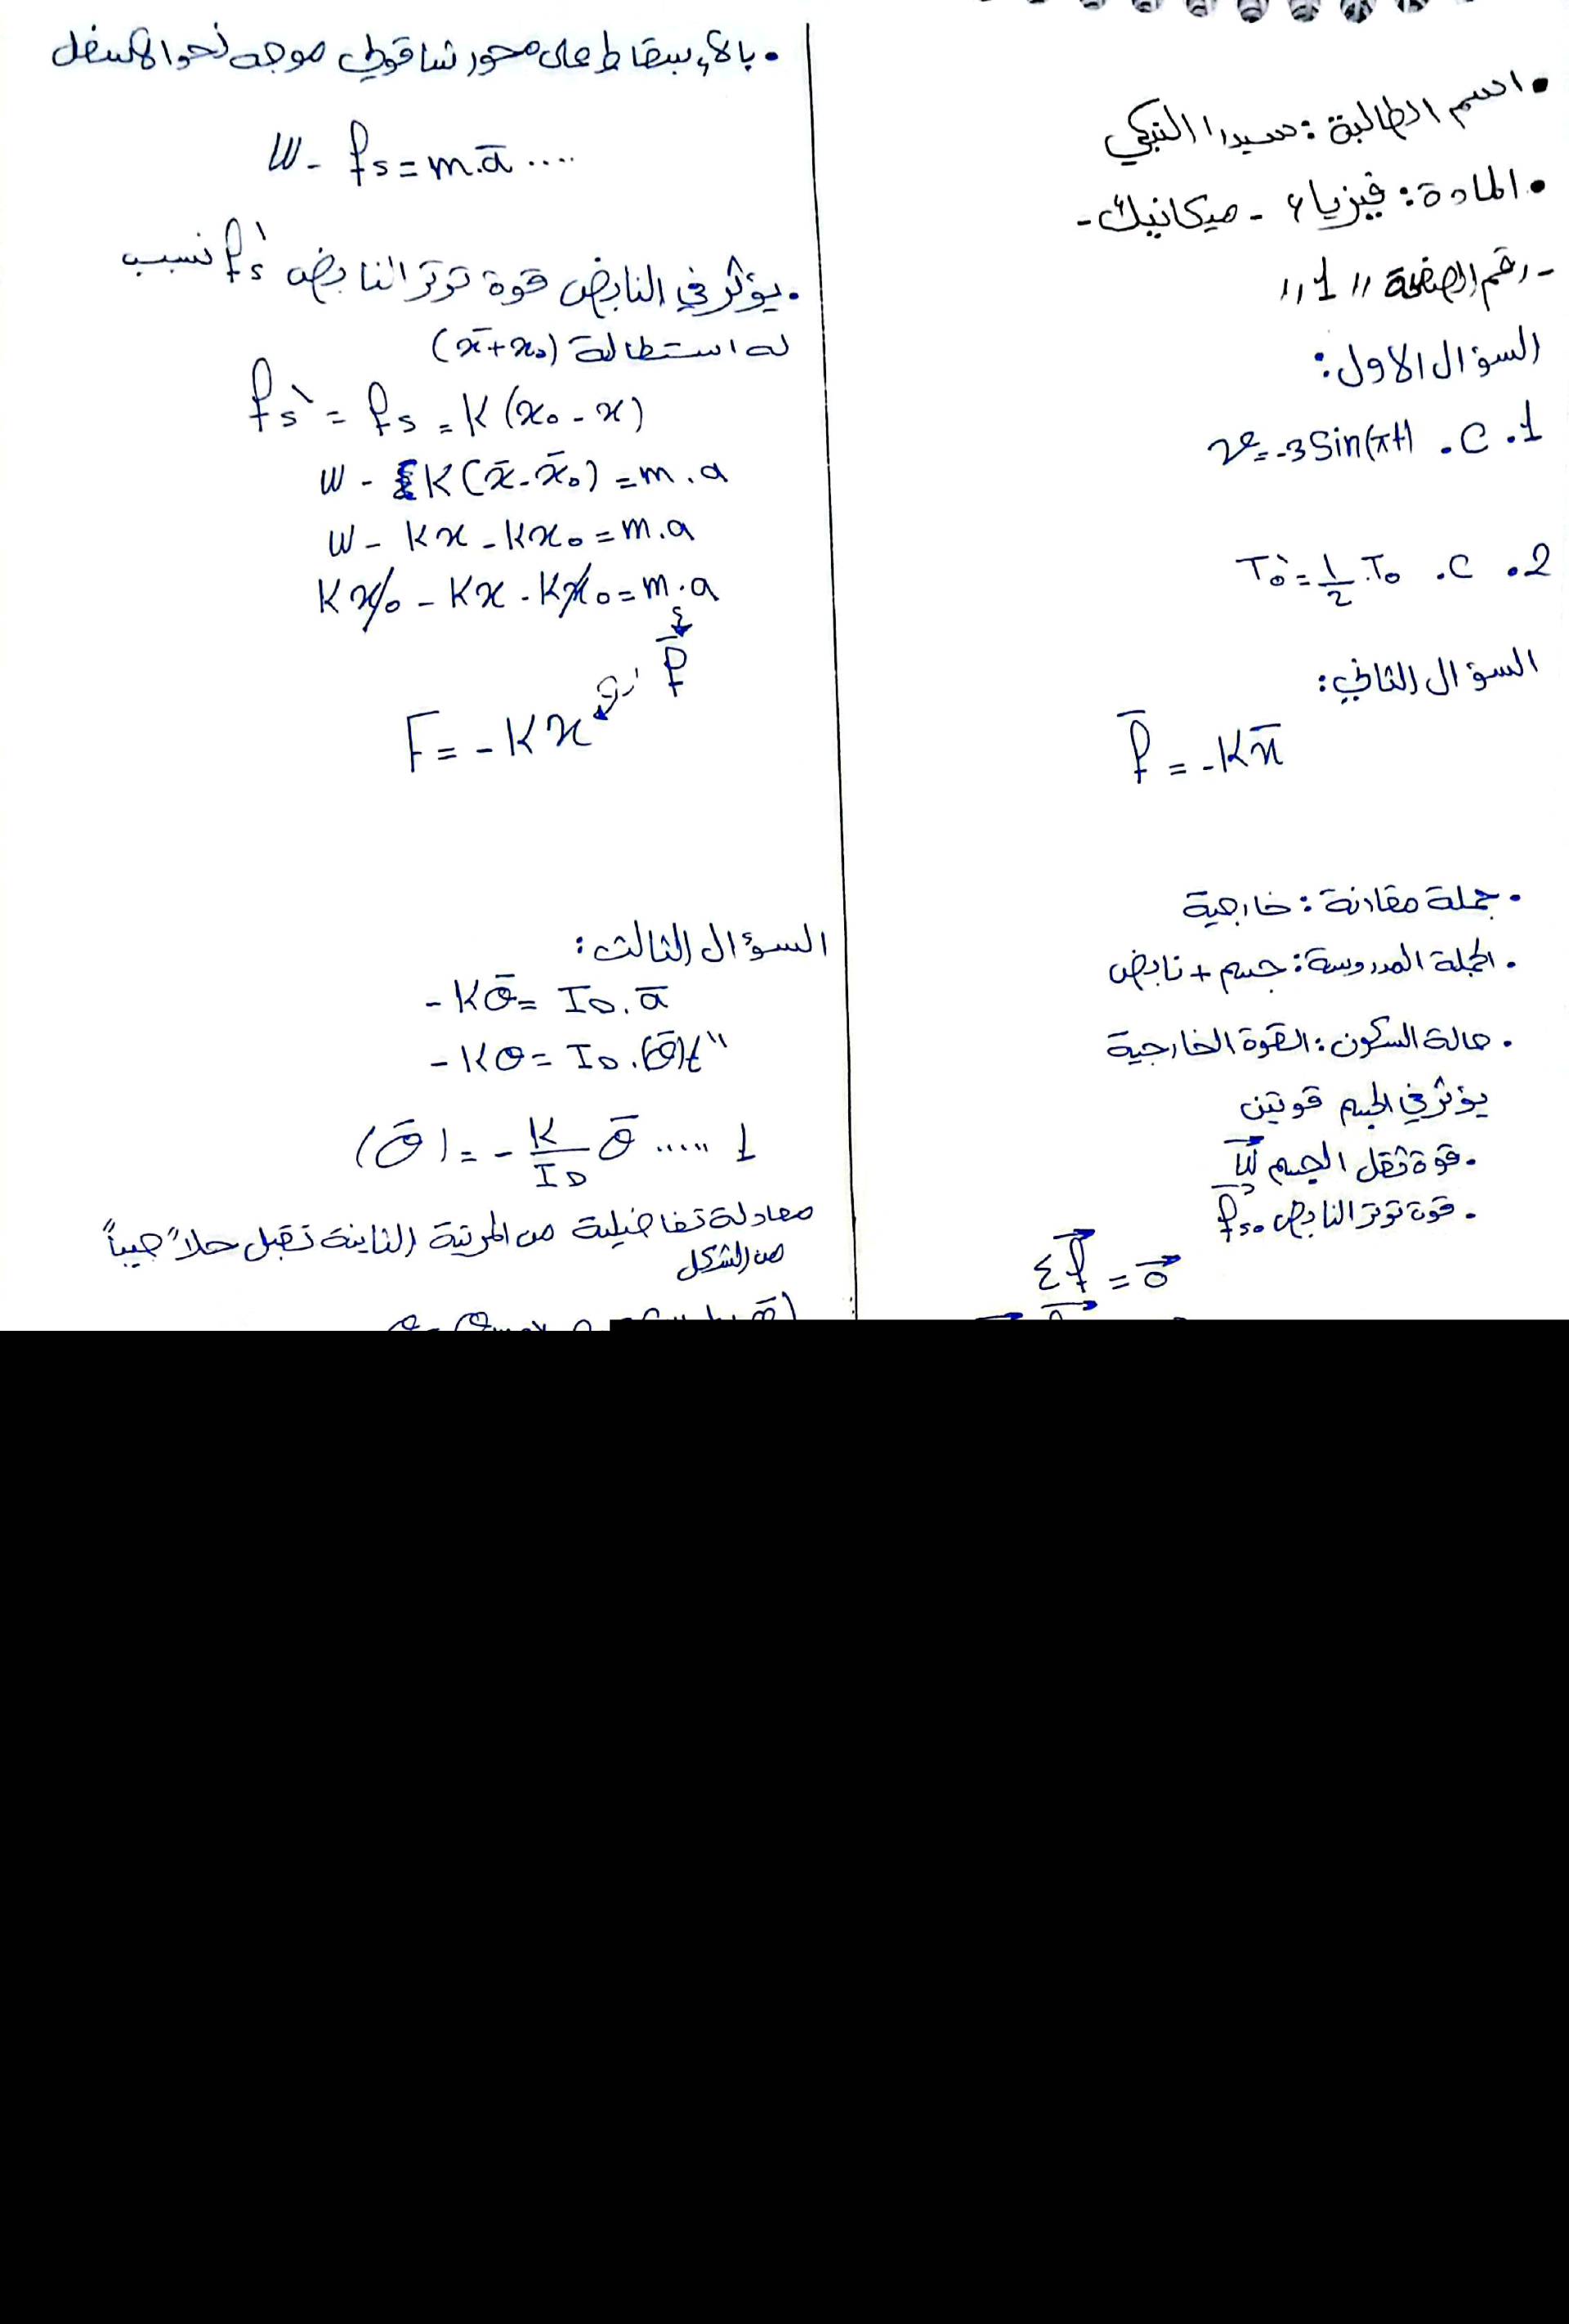 • اسم الطالبة: سيدرا النبكي
• المادة: فيزياء - ميكانيك -
- رقم الصفحة "1"
السؤال الاول:
1. C. v = -3 Sin(πt)
2. C. T₀` = 1/2 . T₀
السؤال الثاني:
F̄ = -Kx̄
• جملة مقارنة: خارجية
• الجملة المدروسة: جسم + نابض
• حالة السكون: القوة الخارجية
يؤثر في الجسم قوتين
• قوة ثقل الجسم W⃗
• قوة توتر النابض F⃗s₀
Σ F⃗ = 0⃗
• بالإسقاط على محور شاقولي موجه نحو الاسفل
W - Fs = m.ā ....
• يؤثر في النابض قوة توتر النابض Fs' تسبب
له استطالة (x̄ + x₀)
Fs` = Fs = K (x₀ - x)
W - K (x̄ - x̄₀) = m . a
W - Kx - Kx₀ = m.a
Kx₀ - Kx - Kx₀ = m.a
F̄
F = -Kx
السؤال الثالث:
-Kθ̄ = I_D . ā
-Kθ = I_D . (θ̄)t"
(θ̄) = - K/I_D θ̄ ..... 1
معادلة تفاضيلية من المرتبة الثانية تقبل حلاً جيباً
من الشكل